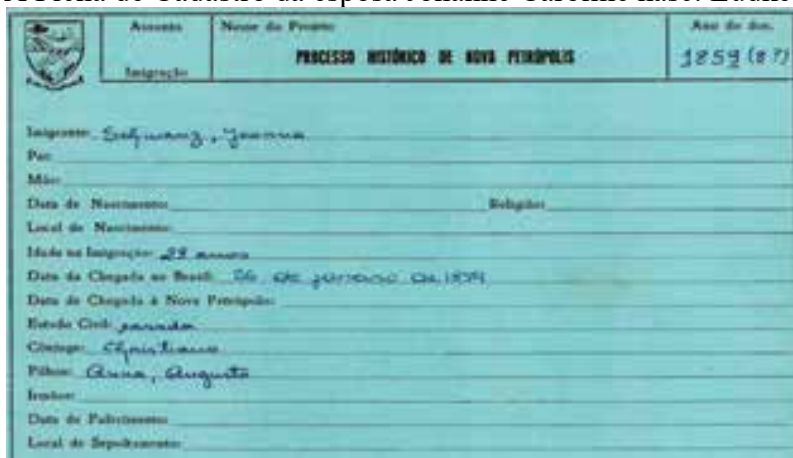 Assunto
Imigração
Nome do Projeto
PROCESSO HISTÓRICO DE NOVA PETRÓPOLIS
Ano do doc.
1859 (8?)
Imigrante: Schwanz, Joanna
Pai:
Mãe:
Data de Nascimento: Religião:
Local de Nascimento:
Idade na Imigração: 29 anos
Data da Chegada ao Brasil: 06 de janeiro de 1859
Data de Chegada à Nova Petrópolis:
Estado Civil: casada
Cônjuge: Christiano
Filhos: Anna, Augusto
Irmãos:
Data do Falecimento:
Local de Sepultamento: